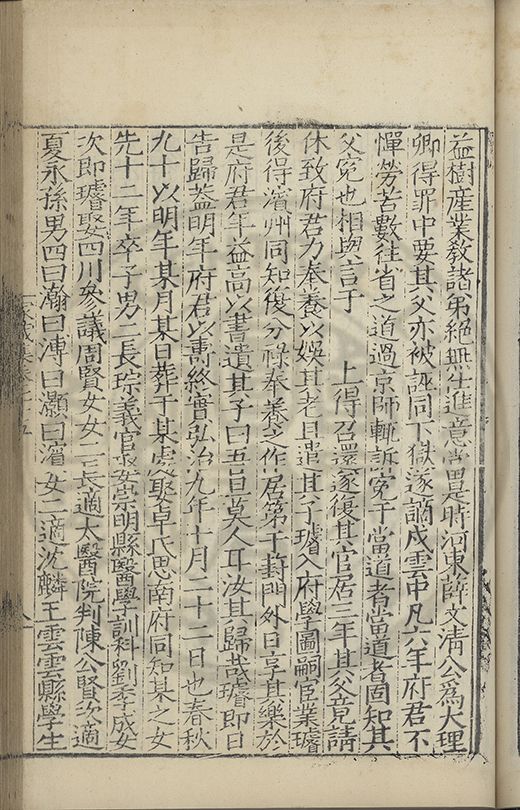 益樹產業教諸弟絕無生進意當是時河東薛文清公為大理
卿得罪中要其父亦被誣同下獄遂謫戍雲中凡六年府君不
憚勞苦數往省之道過京師輒訴冤于當道者當道者固知其
父冤也相與言于 上得召還遂復其官居三年其父竟請
休致府君力奉養以娛其老且遣其子璿入府學圖嗣宦業璿
後得濱州同知復分祿奉養之作居第于葑門外日享其樂於
是府君年益高以書遺其子曰吾旦莫人耳汝其歸哉璿即日
告歸蓋明年府君以壽終實弘治九年十月二十二日也春秋
九十以明年某月某日葬于某處娶卓氏思南府同知某之女
先十二年卒子男二長琮義官娶崇明縣醫學訓科劉季成女
次即璿娶四川參議周賢女女二長適太醫院判陳公賢次適
夏永孫男四曰瀚曰溥曰灝曰濱女二適沈麟王雲雲縣學生